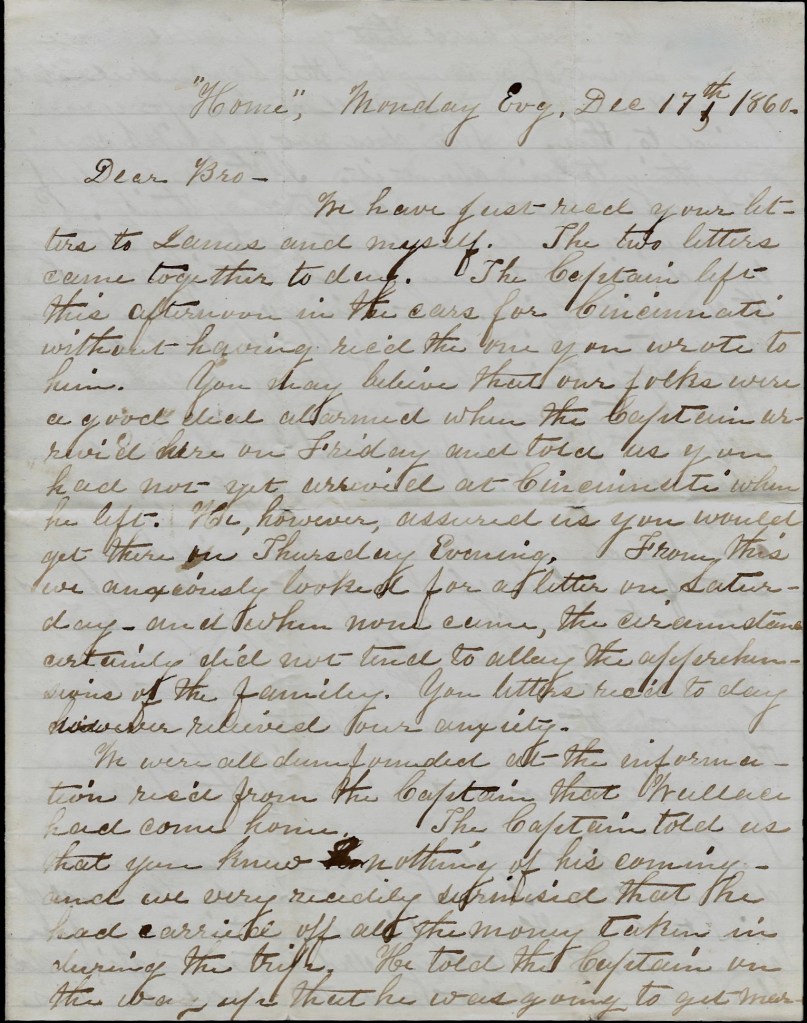 "Home", Monday Evg, Dec 17th, 1860.
Dear Bro-
We have just recd your let-
ters to James and myself. The two letters
came together to day. The Captain left
this afternoon in the cars for Cincinnati
without having rec'd the one you wrote to
him. You may believe that our folks were
a good deal alarmed when the Captain ar-
rived here on Friday and told us you
had not yet arrived at Cincinnati when
he left. He, however, assured us you would
get there on Thursday Evening. From this
we anxiously looked for a letter on Satur-
day - and when none came, the circumstance
certainly did not tend to allay the apprehen-
sions of the family. You letters rec'd to day
however relieved our anxiety.
We were all dumfounded at the informa-
tion rec'd from the Captain that Wallace
had come home. The Captain told us
that you knew nothing of his coming -
and we very readily surmised that he
had carried off all the money taken in
during the trip. He told the Captain on
the way up that he was going to get mar-